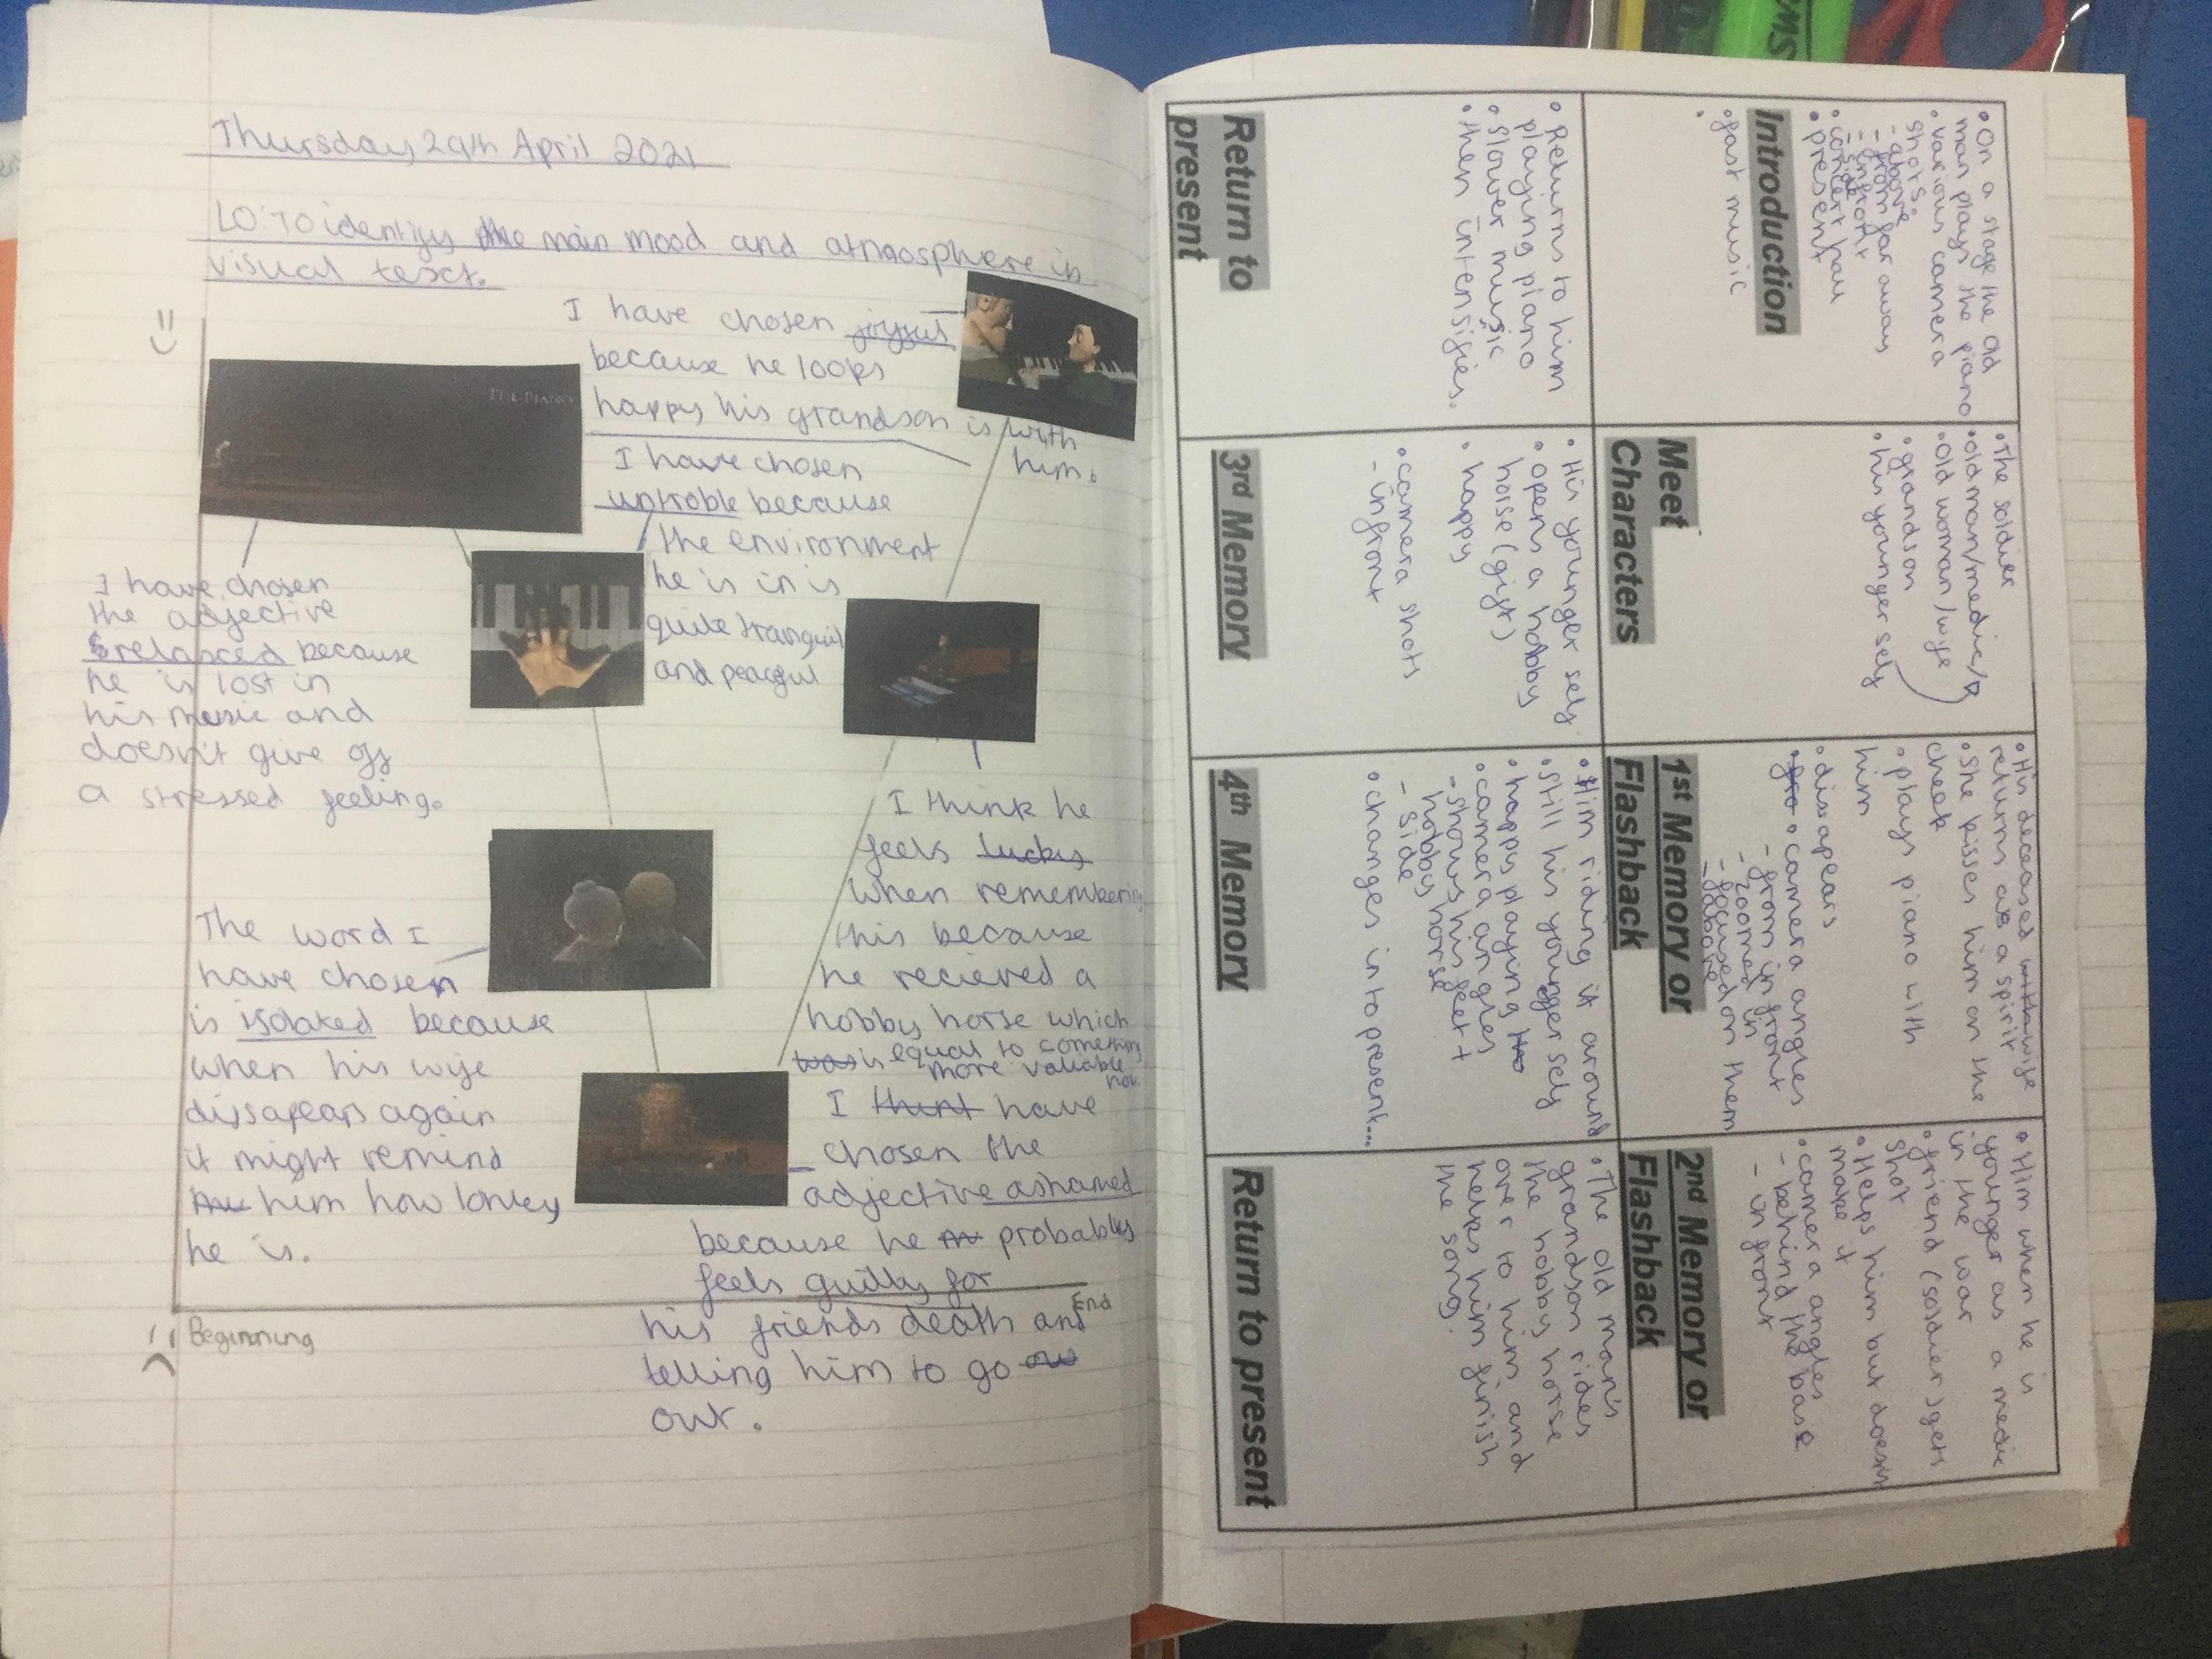 Thursday 29th April 2021
LO: To identify the main mood and atmosphere in
visual text.
I have chosen joyful
because he looks
happy his grandson is with
him.
THE PIANO
I have chosen
because
the environment
he is in is
quite tranquil
and peaceful
I have chosen
the adjective
relaxed because
he is lost in
his music and
doesn't give off
a stressed feeling.
I think he
feels lucky
when remembering
this because
he recieved a
hobby horse which
was is equal to something
more valuable
now.
The word I
have chosen
is isolated because
when his wife
dissapears again
it might remind
him how lonley
he is.
I think have
chosen the
adjective ashamed
because he probably
feels guilty for
his friends death and
telling him to go
out.
Beginning
End
• On a stage the old
man plays the piano
• various camera
shots.
- above
- from far away
- infront
- side
• concert hall
• present
Introduction
• fast music
• The soldier
• old man/medic/
• old woman/wife
• grandson
• his younger self
Meet
Characters
• His deceased wife
returns as a spirit
• she kisses him on the
cheek
• plays piano with
him
• disapears
• camera angles
- from in front
- zoomed in
- focused on them
- above
1st Memory or
Flashback
• Him when he is
younger as a medic
in the war
• friend (soldier) gets
shot
• Helps him but doesn't
make it
• camera angles
- behind the base
- in front
2nd Memory or
Flashback
• Returns to him
playing piano
• slower music
• then intensifies.
Return to
present
• His younger self
• opens a hobby
horse (gift)
• happy
• camera shots
- infront
3rd Memory
• Him riding it around
• still his younger self
• happy playing
• camera angles
- shows his feet +
hobby horse
- side
• changes into present...
4th Memory
• The old man's
grandson rides
the hobby horse
over to him and
helps him finish
the song.
Return to present